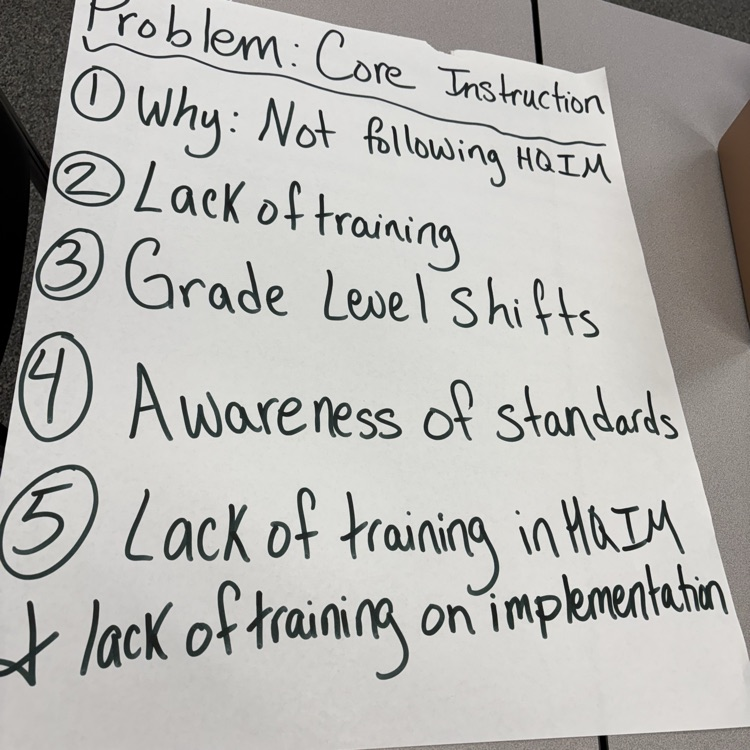 Problem: Core Instruction
① Why: Not following HQIM
② Lack of training
③ Grade Level Shifts
④ Awareness of standards
⑤ Lack of training in HQIM
& lack of training on implementation